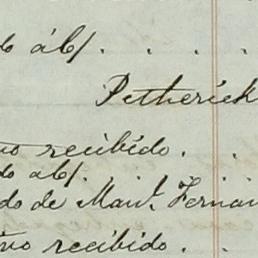 do á b/. . . .
Petherick
vo recibido. .
do a b/. . . .
do de Man.l Fernan
tivo recibido. .